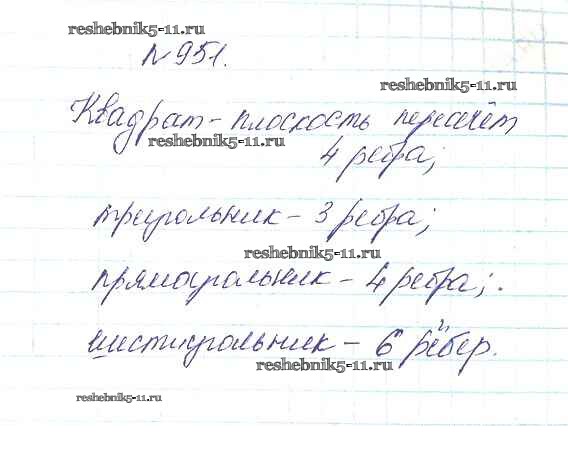 reshebnik5-11.ru
№951.
reshebnik5-11.ru
Квадрат - плоскость пересечёт
reshebnik5-11.ru
4 ребра;
треугольник - 3 ребра;
reshebnik5-11.ru
прямоугольник - 4 ребра;
шестиугольник - 6 рёбер.
reshebnik5-11.ru
reshebnik5-11.ru